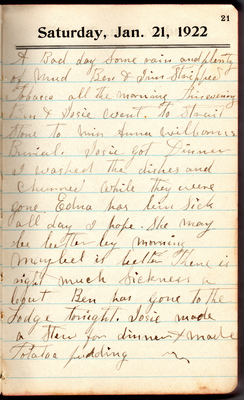 21
Saturday, Jan. 21, 1922
A Bad day Some rain and plenty
of Mud Ben & Stripped
Tobacco all the morning this evening
& Josie went. to
to Miss Anna Williams
Burial. Josie got Dinner
I washed the dishes and
Churned while they were
gone. Edna has bin Sick
all day I hope. She may
be better by morning
is better There is
right much Sickness a
bout Ben has gone to the
Lodge tonight. Josie made
a Stew for dinner & made
Potatoe pudding